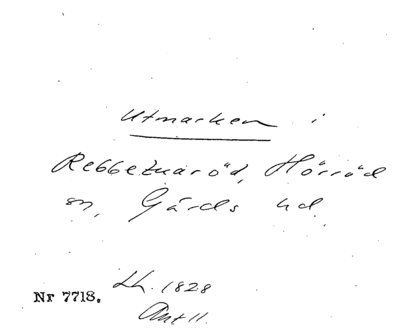 Utmarken i
Rebbetuaröd, Hörröd
sn, Gärds hd.
Nr 7718. Lh. 1828
Ant 11.